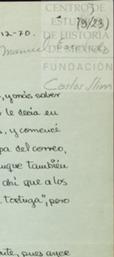 CENTRO DE
ESTUDIOS
DE HISTORIA
DE MÉXICO
FUNDACIÓN
Carlos Slim
(9/23)
12-70.
Manuel
, y más saber
le decía en
, y comencé
pa del correo,
unque también
ahí que a los
tortuga", pero
nte, pues ayer